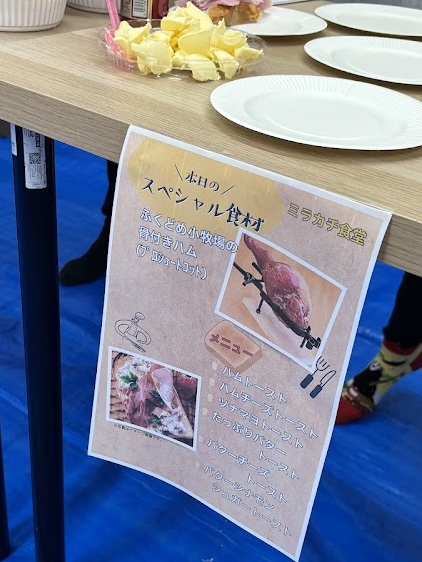 本日の
スペシャル食材
ミラカチ食堂
ふくどめ小牧場の
骨付きハム
(プロシュートコット)
メニュー
ハムトースト
ハムチーズトースト
ツナマヨトースト
たっぷりバター
トースト
バターチーズ
トースト
バターシナモン
シュガートースト